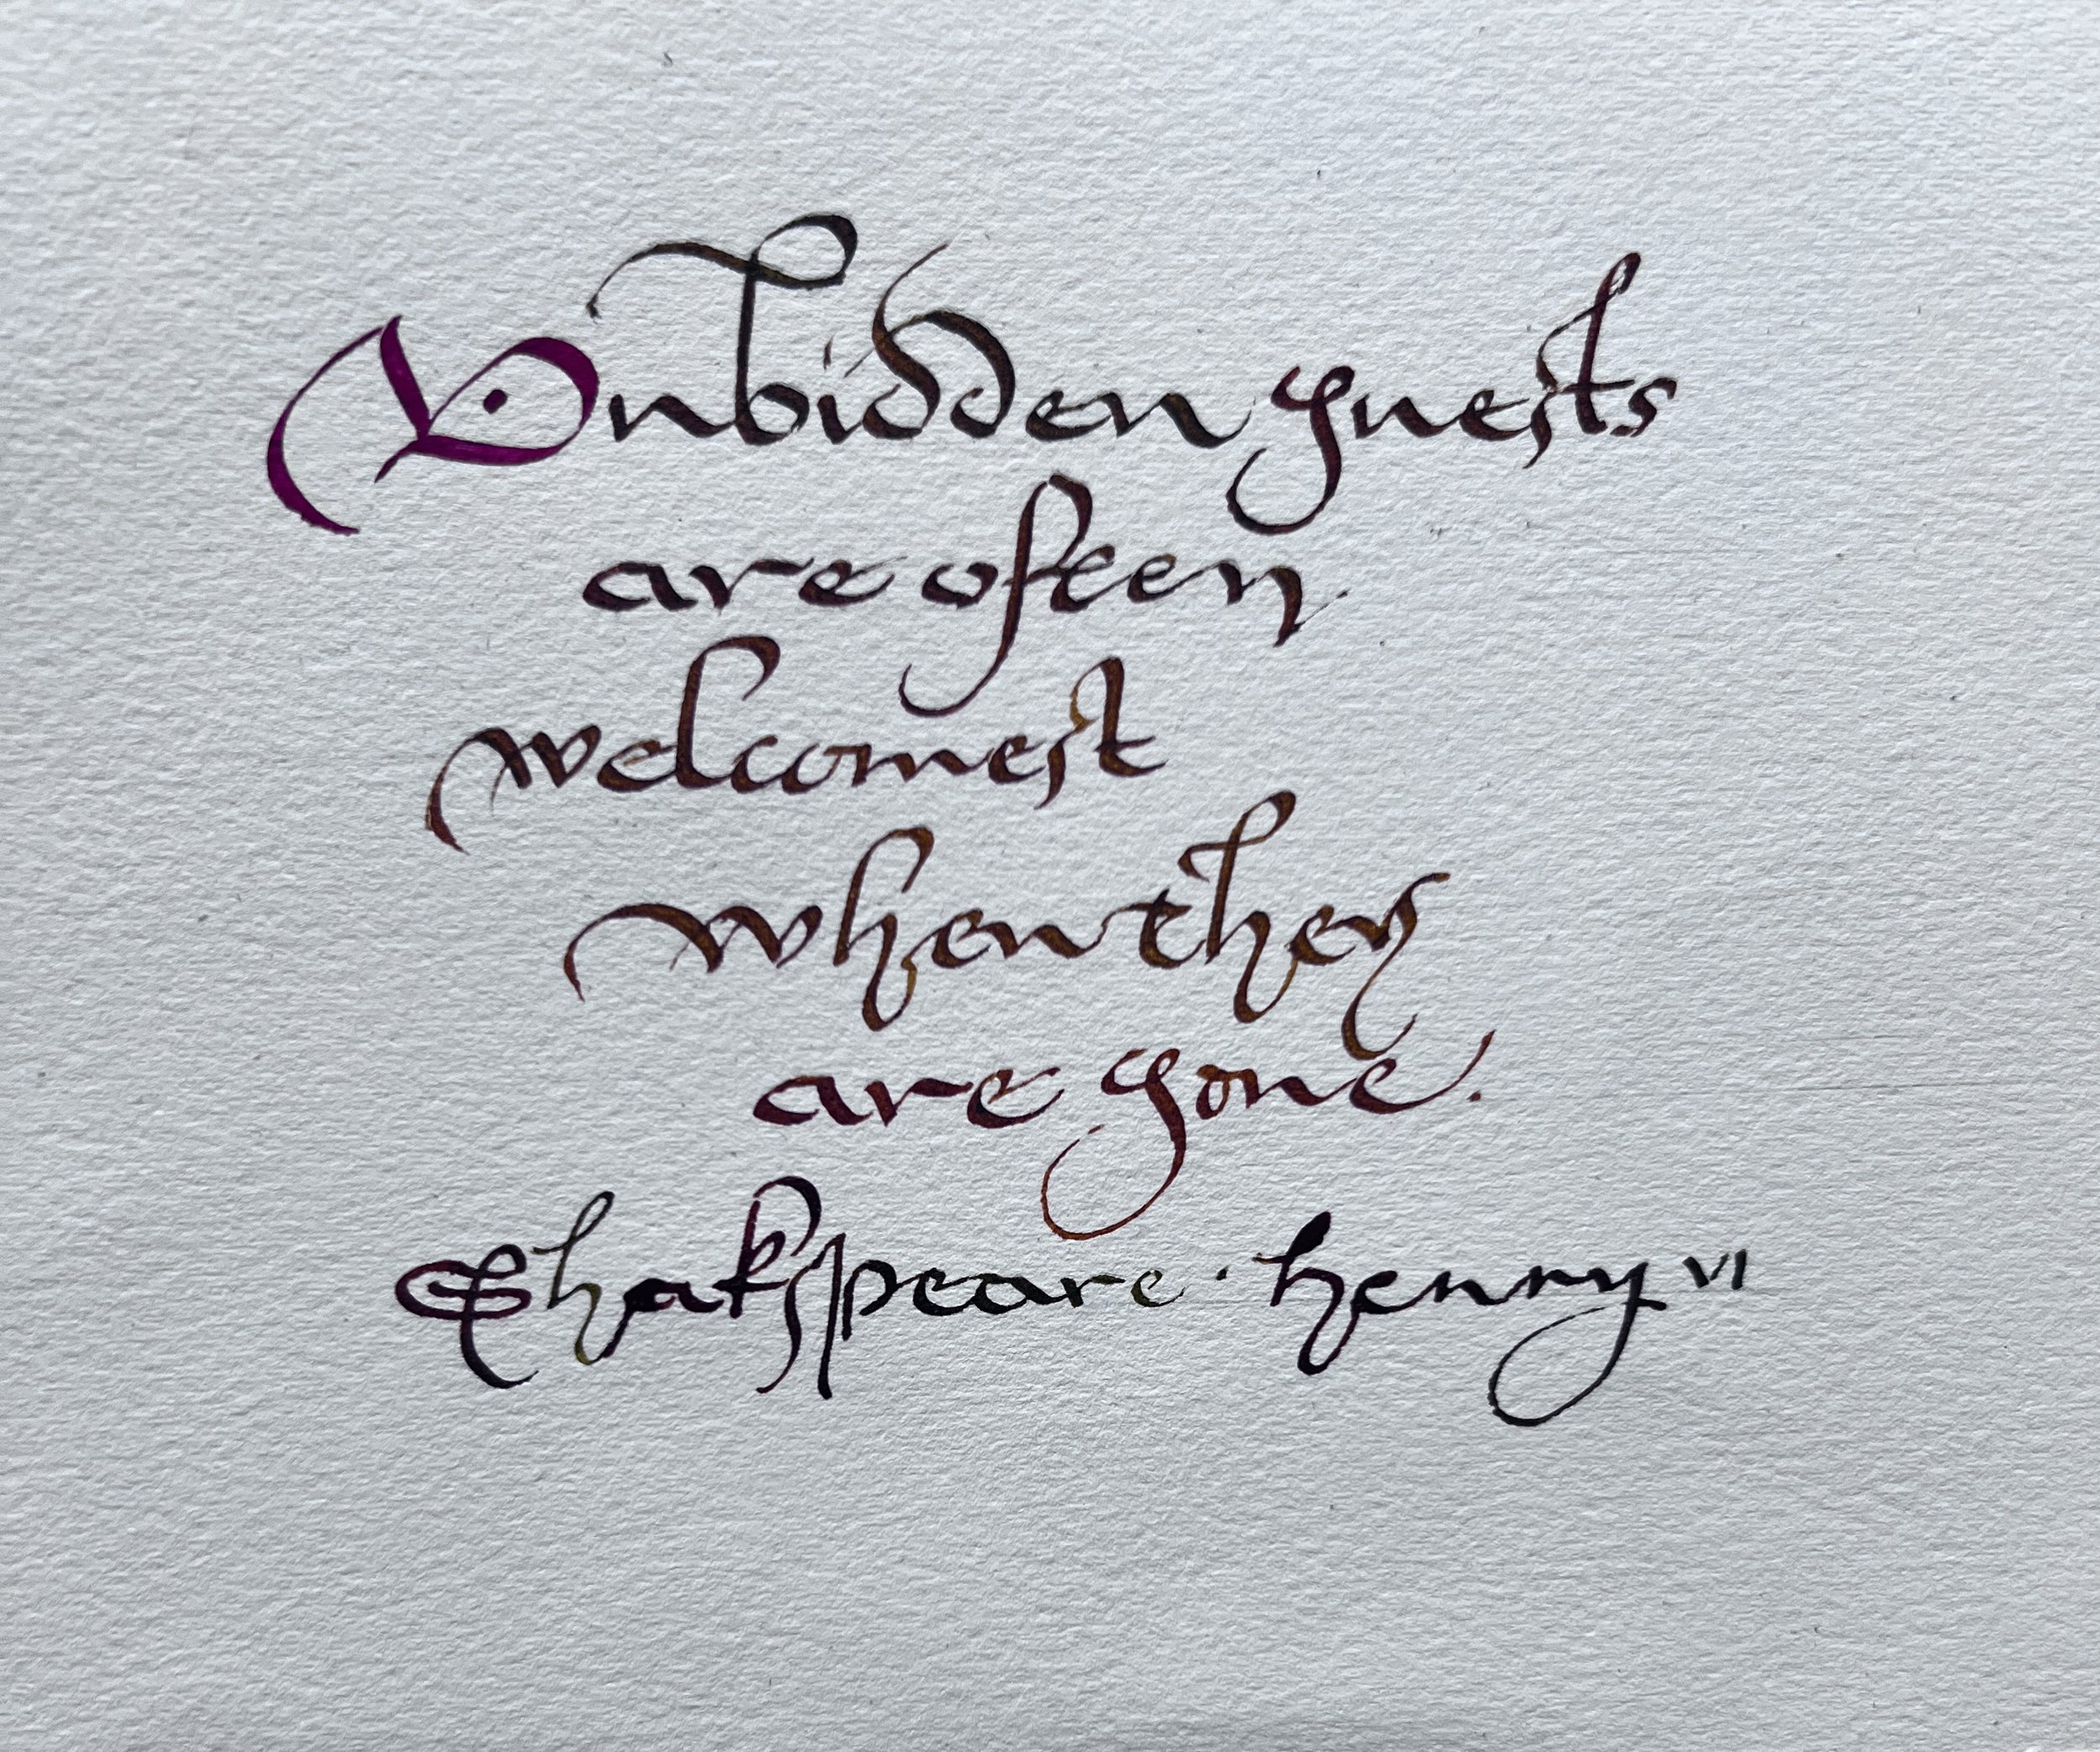 Unbidden guests
are often
welcomest
when they
are gone.
Shakspeare · henry VI